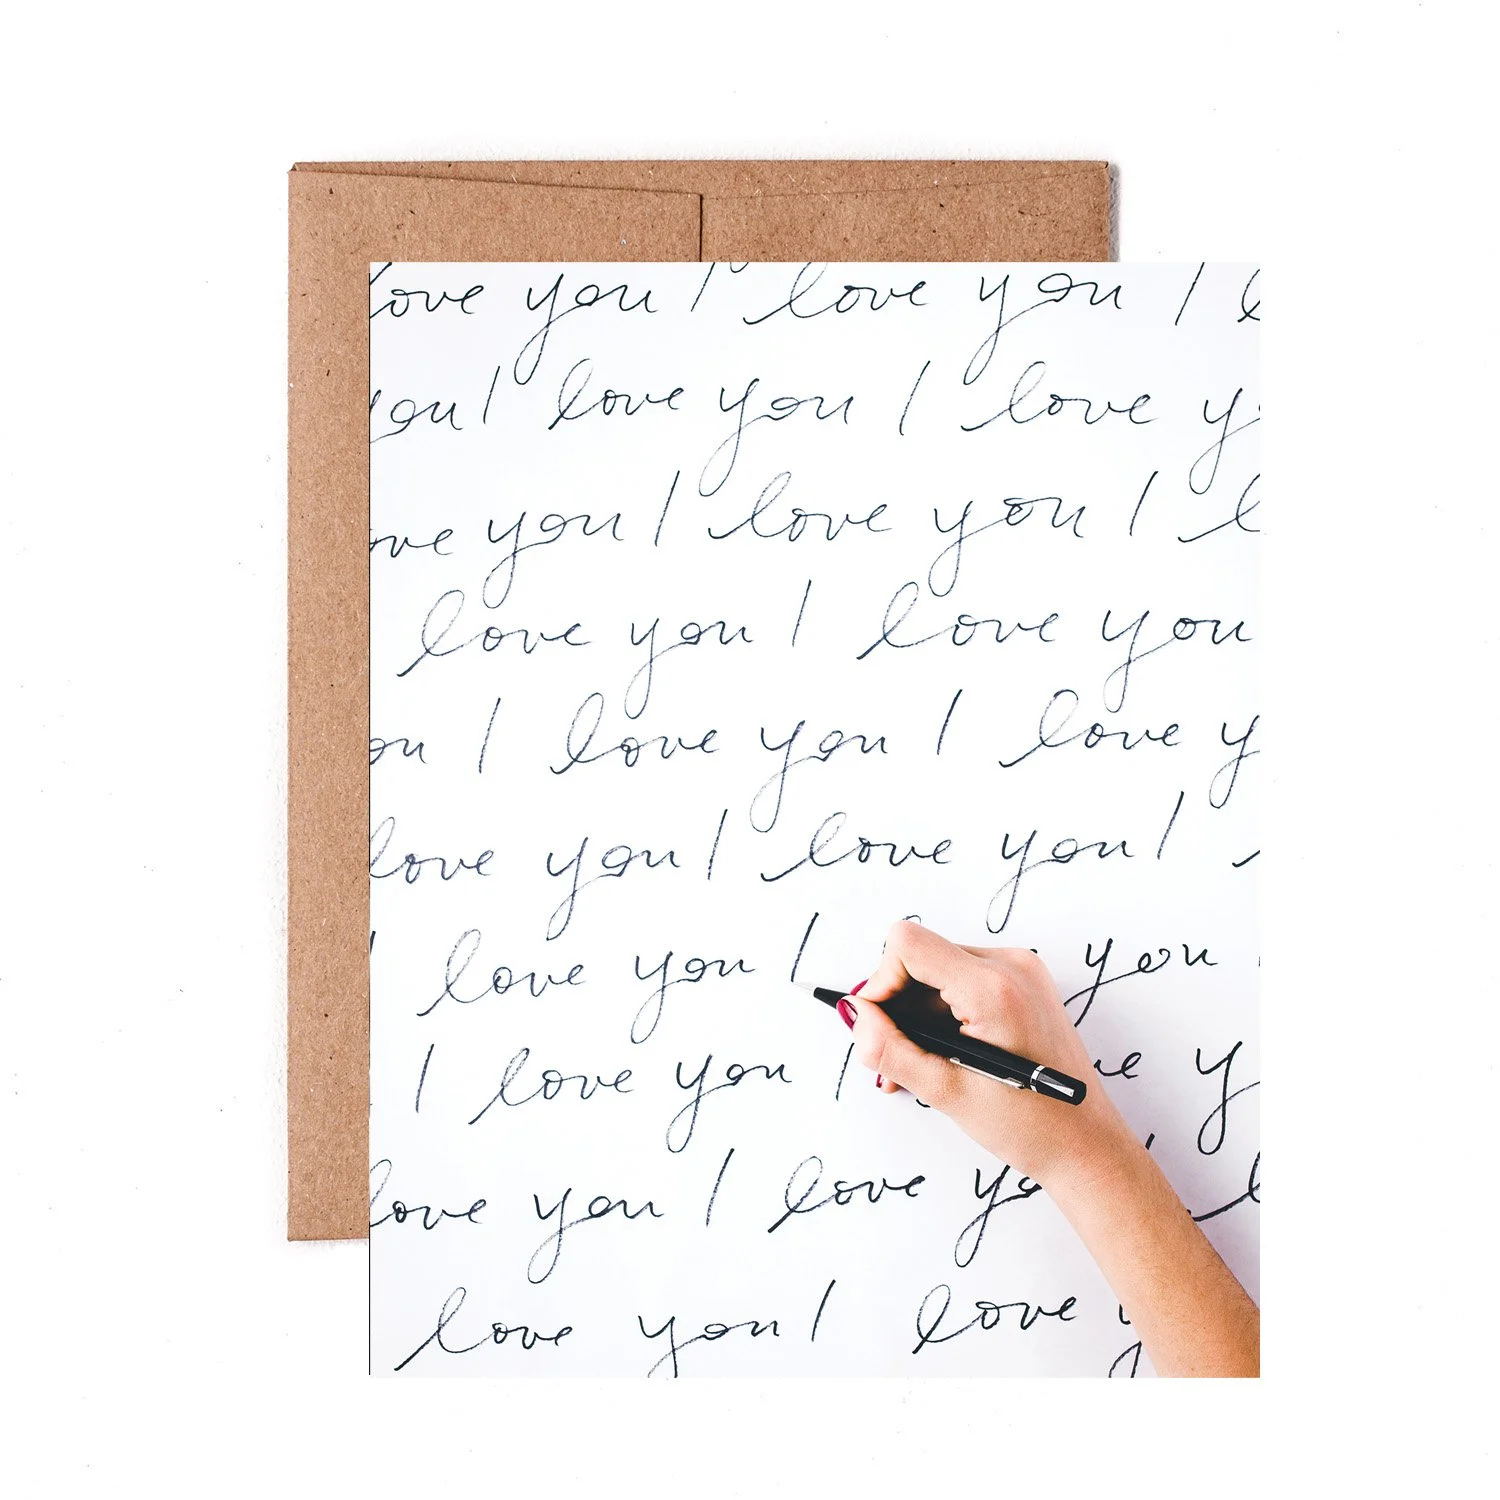 love you I love you I
you I love you I love y
ove you I love you I l
love you I love you
ou I love you I love y
love you I love you I
I love you I you
I love you I ve y
love you I love yo l
love you I love y